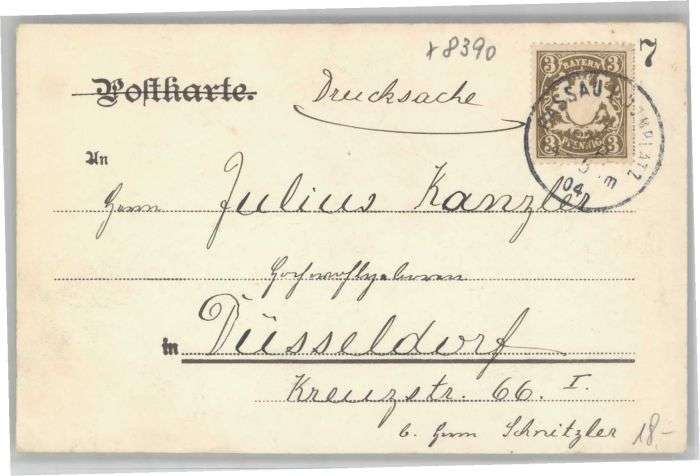 x8390
7
Postkarte.
Drucksache
3 BAYERN 3
3 PFENNIG 3
PASSAU DOMPLATZ
04
An
Herrn Julius Kanzler
Hochwohlgeboren
in Düsseldorf
Kreuzstr. 66. I.
b. Herrn Schnitzler
18.-